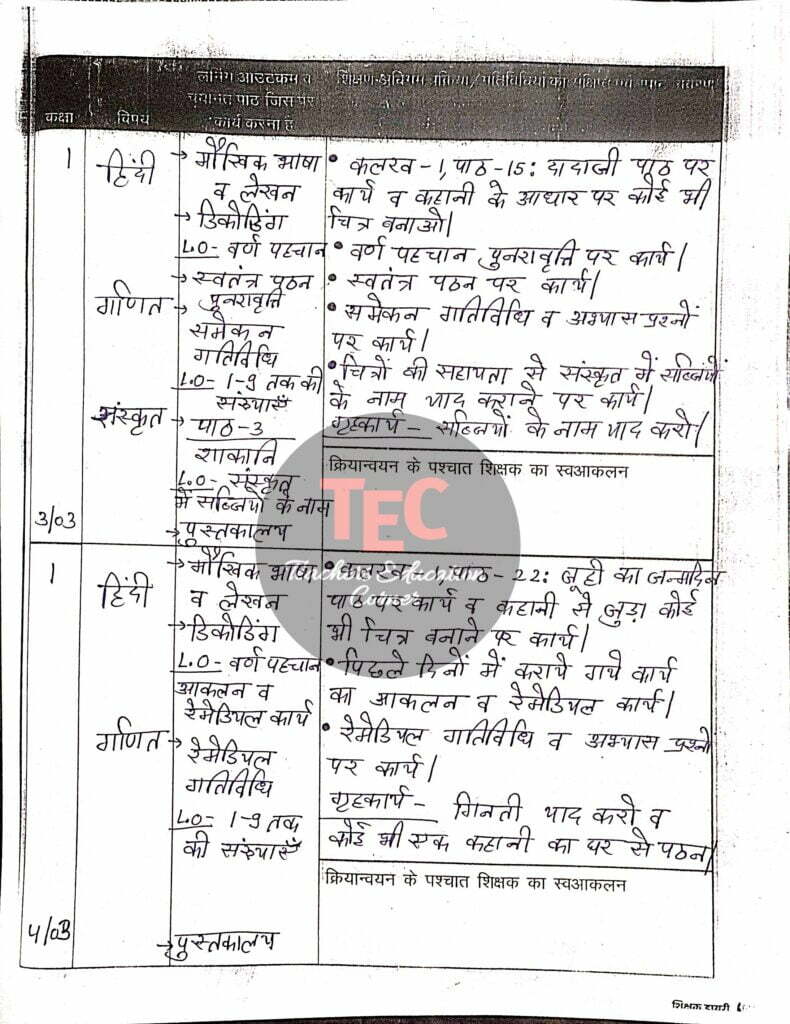 लर्निंग आउटकम व
चयनित पाठ जिस पर
कार्य करना है
शिक्षण-अधिगम
कक्षा
विषय
1
हिंदी
→ मौखिक भाषा
व लेखन
→ डिकोडिंग
L.O- वर्ण पहचान
→ स्वतंत्र पठन
• कलरव-1, पाठ-15: दादाजी पाठ पर
कार्य व कहानी के आधार पर कोई भी
चित्र बनाओ।
• वर्ण पहचान पुनरावृत्ति पर कार्य।
• स्वतंत्र पठन पर कार्य।
गणित
→ पुनरावृत्ति
समेकन
गतिविधि
L.O- 1-9 तक की
संख्याएँ
• समेकन गतिविधि व अभ्यास प्रश्नों
पर कार्य।
संस्कृत
→ पाठ-3
शाकानि
L.O- संस्कृत
में सब्जियों के नाम
→ पुस्तकालय
• चित्रों की सहायता से संस्कृत में सब्जियों
के नाम याद कराने पर कार्य।
गृहकार्य- सब्जियों के नाम याद करो।
क्रियान्वयन के पश्चात शिक्षक का स्वआकलन
3/03
TEC
Teachers Education
Corner
1
हिंदी
→ मौखिक भाषा
व लेखन
→ डिकोडिंग
L.O- वर्ण पहचान
आकलन व
रेमेडियल कार्य
• कलरव-1, पाठ-22: जूही का जन्मदिन
पाठ पर कार्य व कहानी से जुड़ा कोई
भी चित्र बनाने पर कार्य।
• पिछले दिनों में कराये गये कार्य
का आकलन व रेमेडियल कार्य।
गणित
→ रेमेडियल
गतिविधि
L.O- 1-9 तक
की संख्याएँ
→ पुस्तकालय
• रेमेडियल गतिविधि व अभ्यास प्रश्नो
पर कार्य।
गृहकार्य- गिनती याद करो व
कोई भी एक कहानी का घर से पठन।
क्रियान्वयन के पश्चात शिक्षक का स्वआकलन
4/03
शिक्षक डायरी